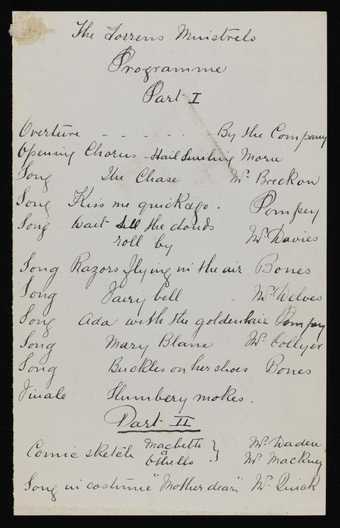 The Torrens Minstrels
Programme
Part I
Overture - - - - - By the Company
Opening Chorus - Hail Smiling Morn
Song The Chase Mr. Breckon
Song Kiss me quick & go. Pompey
Song Wait till the clouds
roll by Mr. Davies
Song Razors flying in the air Bones
Song Fairy bell Mr.
Song Ada with the golden hair Pompey
Song Mary Blane Mr. Collyer
Song Buckles on her shoes Bones
Finale Slumbery mokes.
Part II
Comic sketch Macbeth } Mr. Waden
& Othello } Mr. Mackney
Song in costume "Mother dear" Mr. Quick